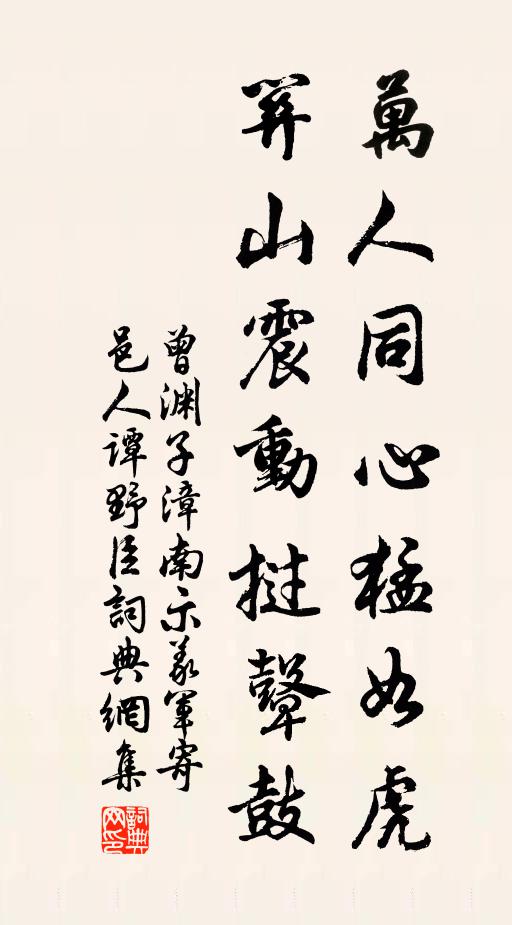 萬人同心猛如虎
笄山震動撻鼙鼓
曾淵子漳南示義軍寄
邑人譚野臣詞典網集
詞典
网印